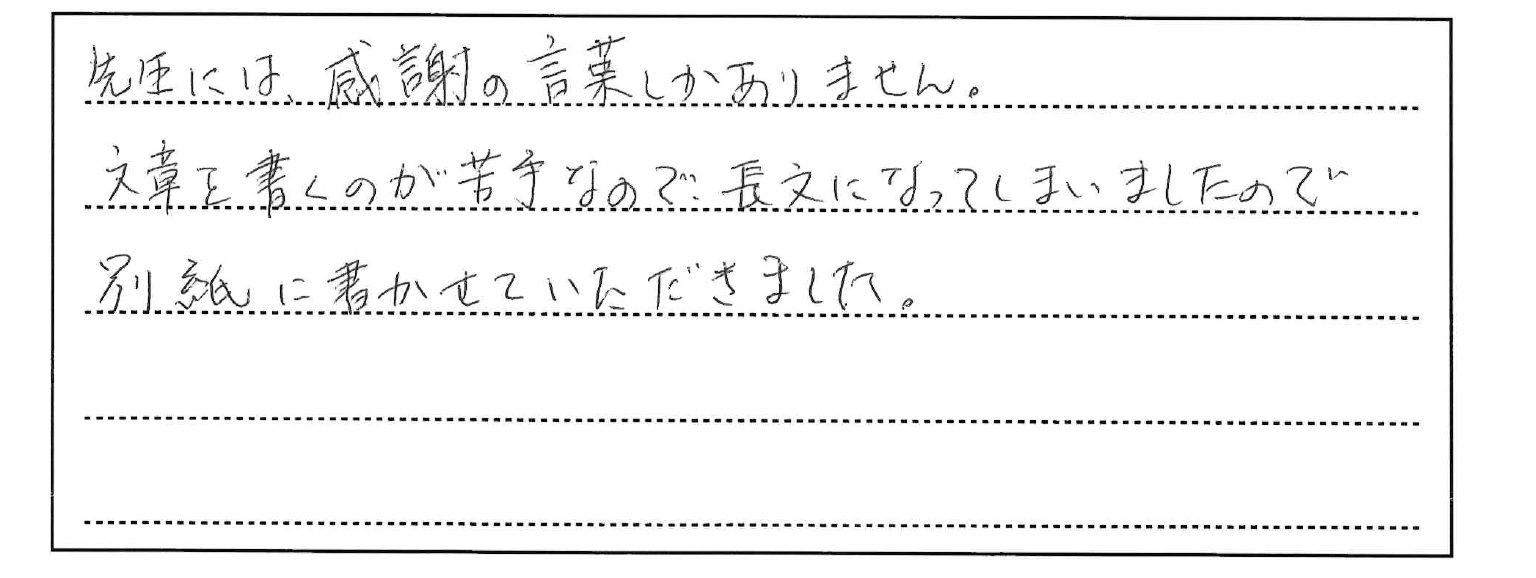 先生には、感謝の言葉しかありません。
文章を書くのが苦手なので、長文になってしまいましたので
別紙に書かせていただきました。